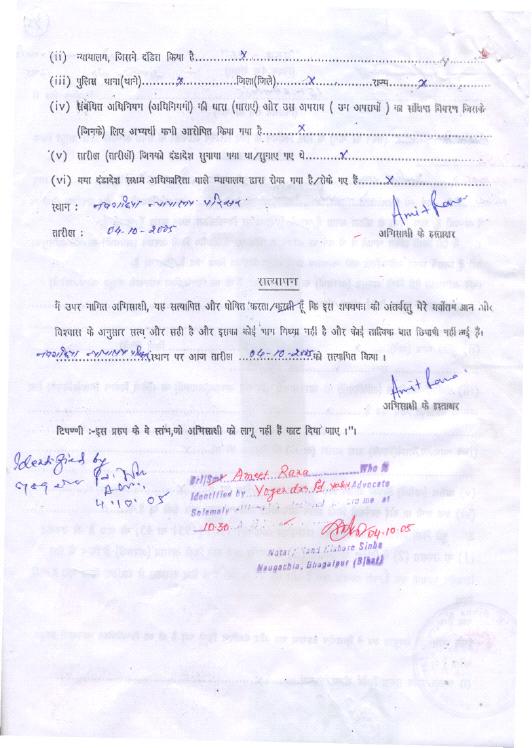 (ii) न्यायालय, जिसने दंडित किया है..........X..........
(iii) पुलिस थाना(थाने)..........X..........जिला(जिले)..........X..........राज्य..........X..........
(iv) संबंधित अधिनियम (अधिनियमों) की धारा (धाराएं) और उस अपराध ( उन अपराधों ) का संक्षिप्त विवरण जिसके
(जिनके) लिए अभ्यर्थी कभी आरोपित किया गया है..........X..........
(v) तारीख (तारीखों) जिनको दंडादेश सुनाया गया था/सुनाए गए थे..........X..........
(vi) क्या दंडादेश सक्षम अधिकारिता वाले न्यायालय द्वारा रोका गया है/रोके गए हैं..........X..........
स्थान : नवगछिया न्यायालय परिसर
Amit Rana
तारीख : 04.10-2005
अभिसाक्षी के हस्ताक्षर
सत्यापन
मैं उपर नामित अभिसाक्षी, यह सत्यापित और घोषित करता/करती हूँ कि इस शपथपत्र की अंतर्वस्तु मेरे सर्वोत्तम ज्ञान और
विश्वास के अनुसार सत्य और सही है और इसका कोई भाग मिथ्या नहीं है और कोई तात्विक बात छिपायी नहीं गई है।
नवगछिया न्यायालय परिसर स्थान पर आज तारीख ...04-10-2005 को सत्यापित किया ।
Amit Rana
अभिसाक्षी के हस्ताक्षर
टिप्पणी :-इस प्ररूप के वे स्तंभ,जो अभिसाक्षी को लागू नहीं हैं काट दिया जाए ।"।
Identified by
Adv.
4.10.05
Sri/Smt Ameet Rana Who is
Identified by Yogendra Pd yadav Advocate
Solemnly me at
10-30 A
04.10.05
Notary Nand Kishore Sinha
Naugachia, Bhagalpur (Bihar)